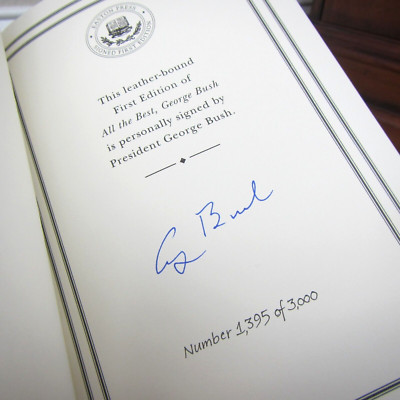 EASTON PRESS
SIGNED FIRST EDITION
This leather-bound
First Edition of
All the Best, George Bush
is personally signed by
President George Bush.
G Bush
Number 1,395 of 3,000